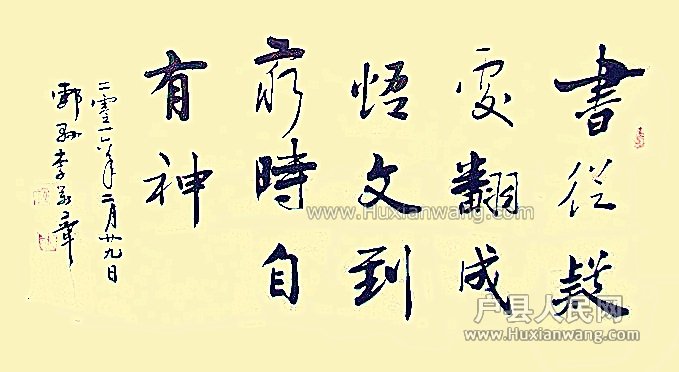 書從疑
處翻成
悟文到
窮時自
有神
二零一六年二月廿九日
鄠縣李章
www.Huxianwang.com
户县人民网
www.Huxianwang.com